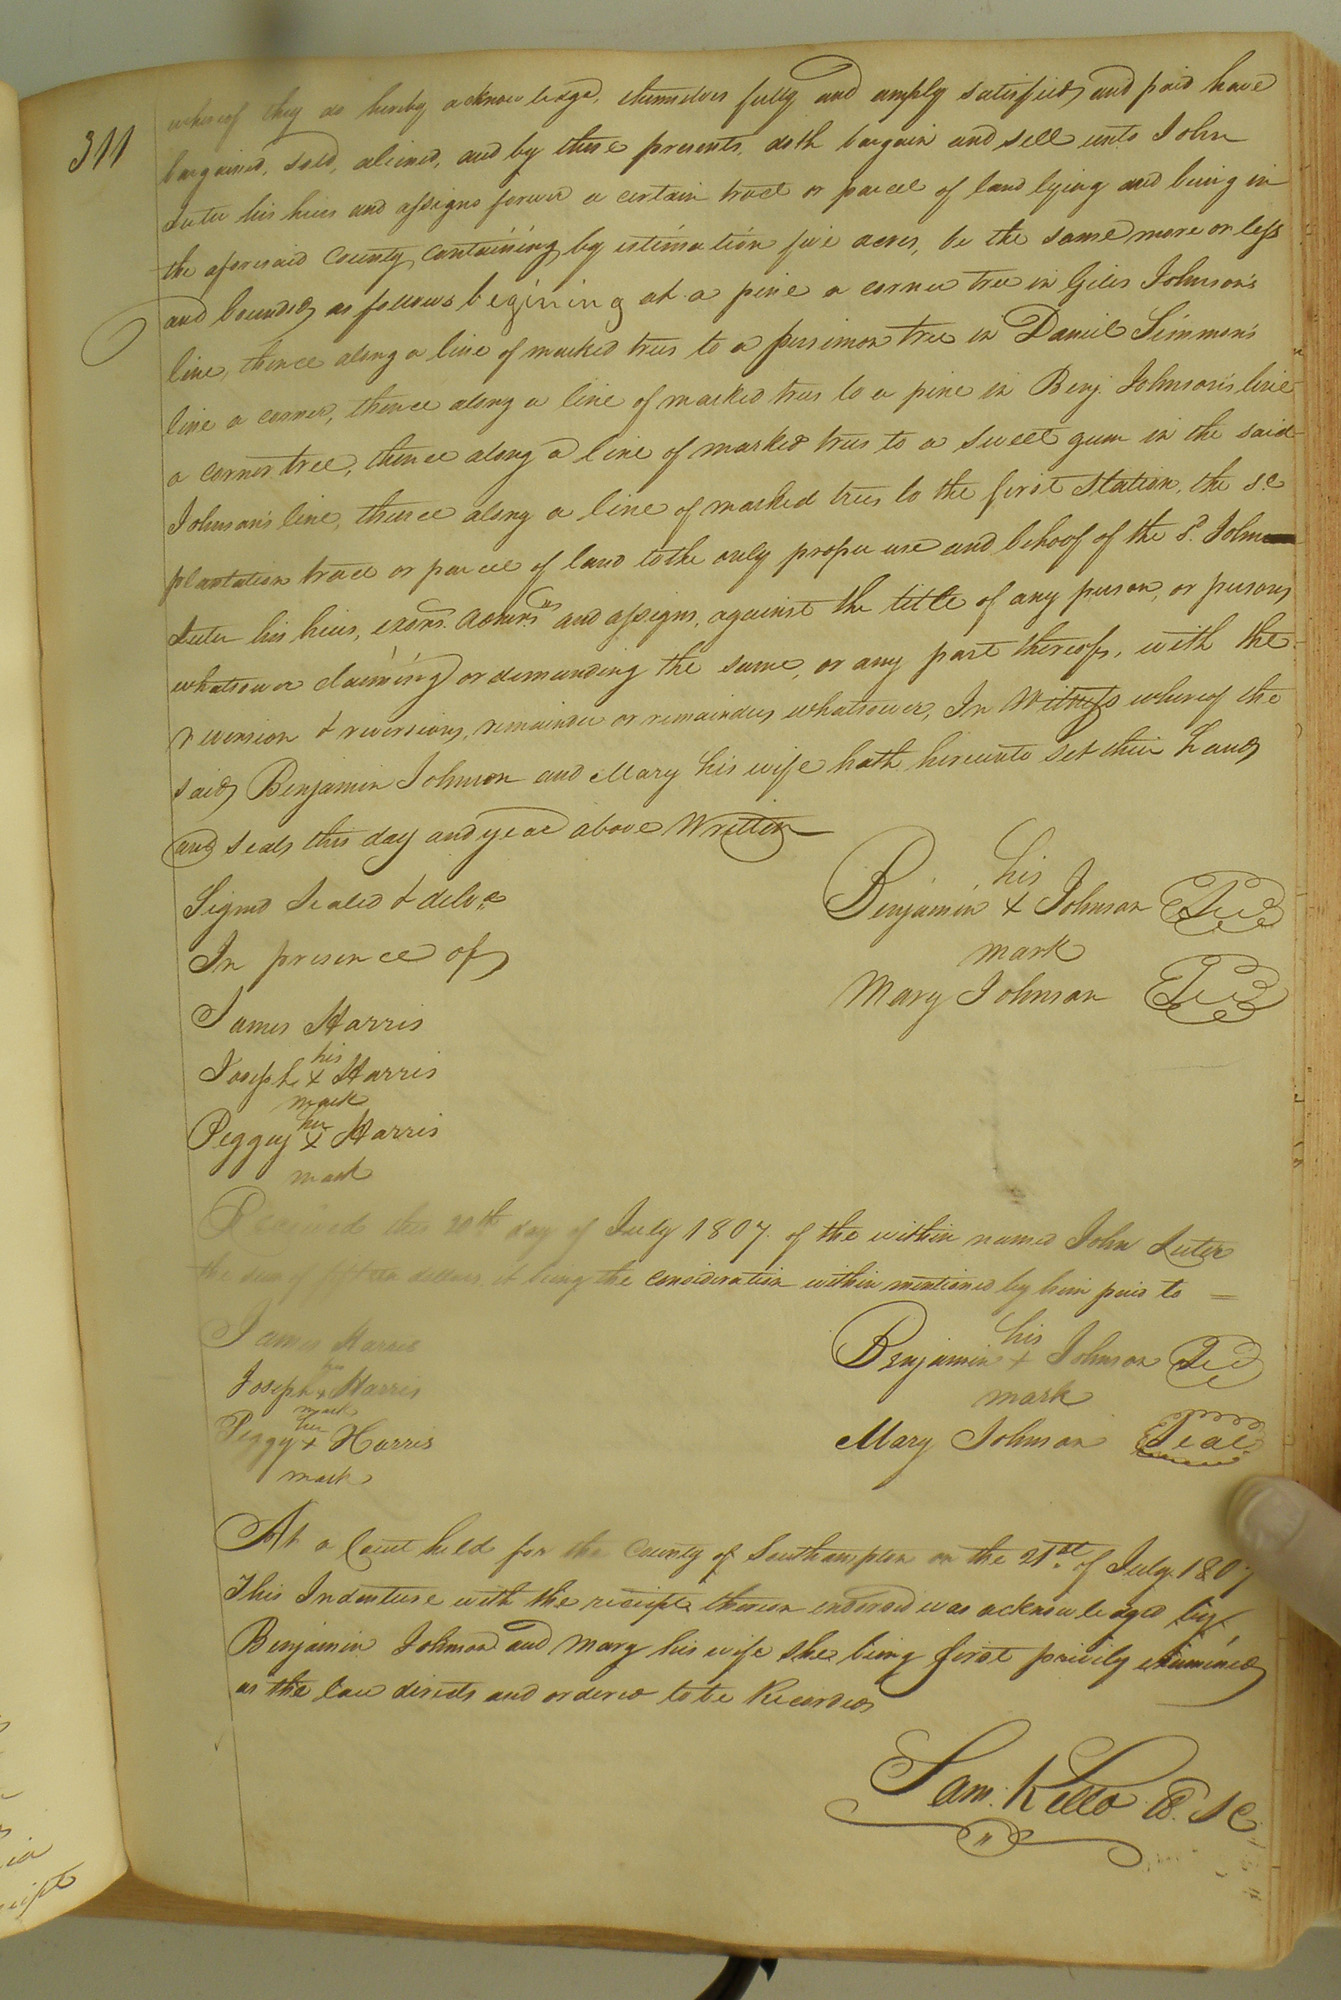 311
whereof they do hereby acknowledge, themselves fully and amply satisfied, and paid have
bargained, sold, aliened, and by these presents, doth bargain and sell unto John
Luter his heirs and assigns forever a certain tract or parcel of land lying and being in
the aforesaid County, containing by estimation five acres, be the same more or less
and bounded as follows begining at a pine a corner tree in Giles Johnson's
line, thence along a line of marked trees to a persimon tree in Daniel Simmon's
line a corner, thence along a line of marked trees to a pine in Benj. Johnson's line
a corner tree, thence along a line of marked trees to a sweet gum in the said
Johnson's line, thence along a line of marked trees to the first Station, the sd
plantation tract or parcel of land to the only proper use and behoof of the sd. John
Luter his heirs, exors. admrs and assigns, against the title of any person, or persons
whatsoever claiming or demanding the same, or any part thereof, with the
reversion & reversions, remainder or remainders whatsoever, In Witness whereof the
said Benjamin Johnson and Mary his wife hath hereunto set their hands
and seals this day and year above Written
Signd Sealed & delvd
In presence of
James Harris
his
Joseph + Harris
mark
her
Peggy + Harris
mark
his
Benjamin + Johnson Seal
mark
Mary Johnson Seal
Received this 20th day of July 1807. of the within named John Luter
the sum of fifteen dollars, it being the consideration within mentioned by him paid to
James Harris
his
Joseph + Harris
mark
her
Peggy + Harris
mark
his
Benjamin + Johnson Seal
mark
Mary Johnson Seal
At a Court held for the County of Southampton on the 21st of July. 1807
This Indenture with the receipt thereon endorsed was acknowledged by
Benjamin Johnson and Mary his wife she being first privily examined
as the law directs and ordered to be Recorded
Sam. Kello